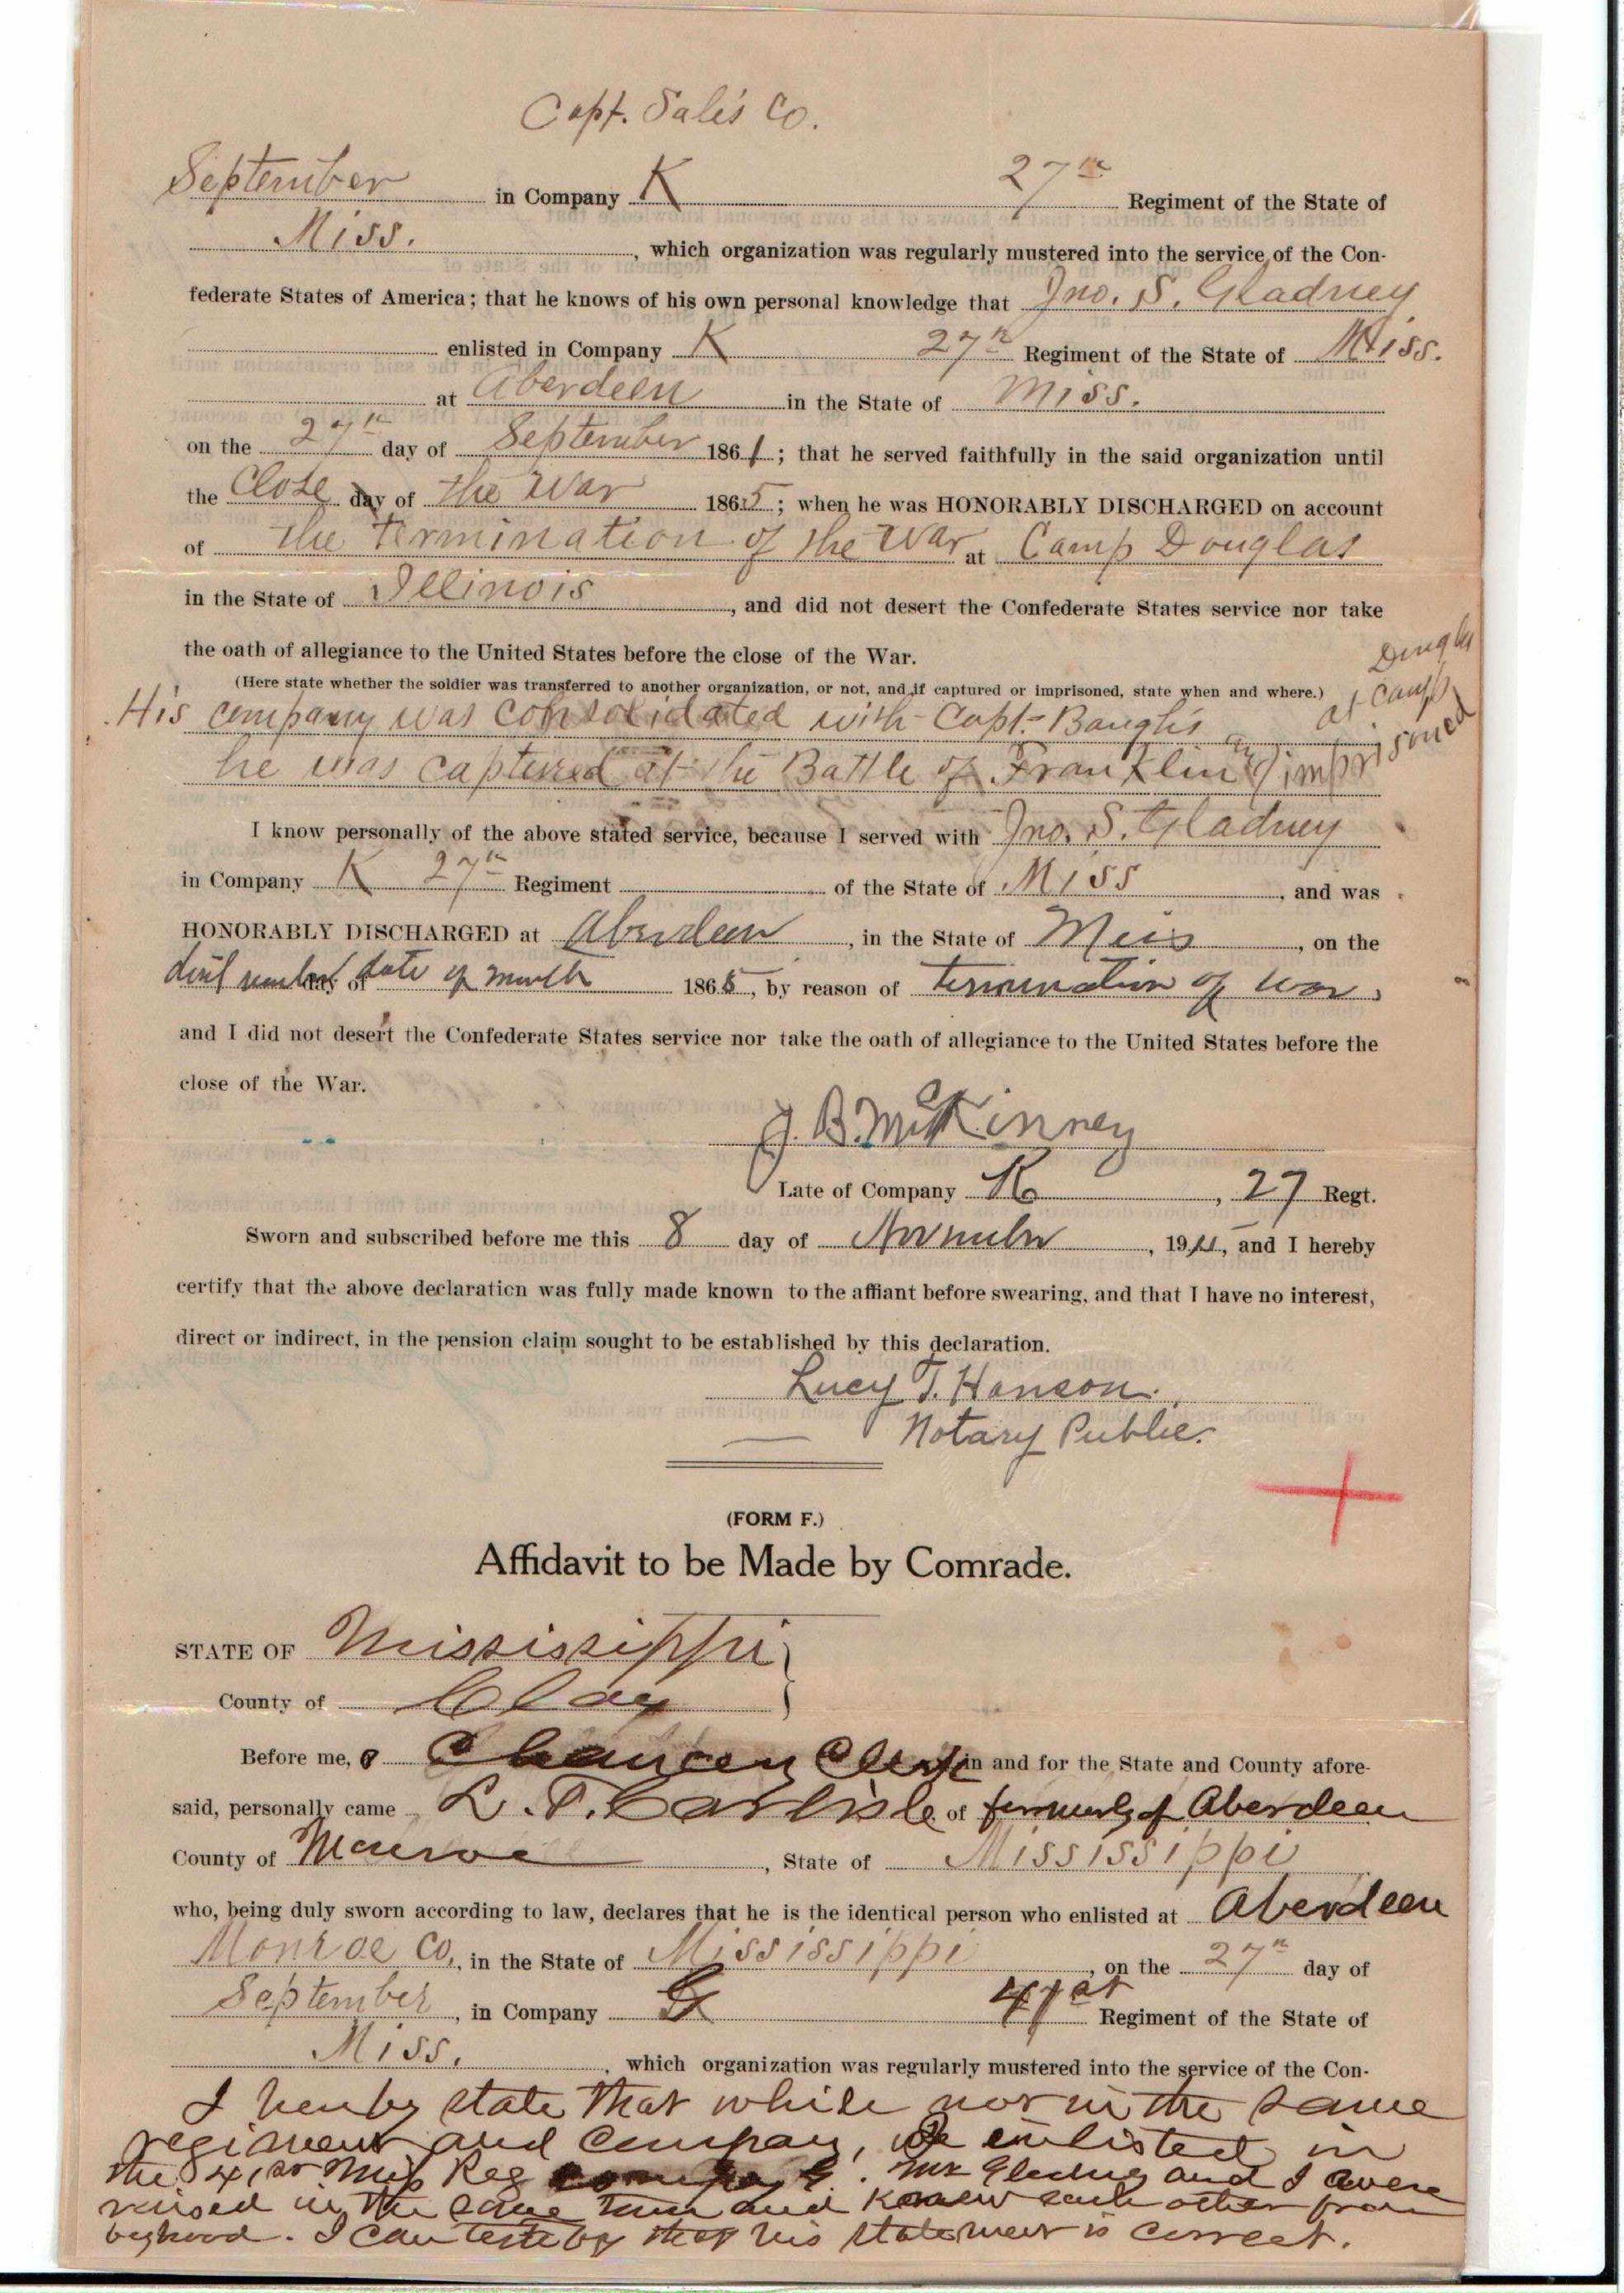 Capt. Sale's Co.
September in Company K 27th Regiment of the State of
Miss. , which organization was regularly mustered into the service of the Con-
federate States of America; that he knows of his own personal knowledge that Jno. S. Gladney
enlisted in Company K 27th Regiment of the State of Miss.
at Aberdeen in the State of Miss.
on the 27th day of September 1861; that he served faithfully in the said organization until
the Close day of the War 1865; when he was HONORABLY DISCHARGED on account
of the termination of the War at Camp Douglas
in the State of Illinois , and did not desert the Confederate States service nor take
the oath of allegiance to the United States before the close of the War.
(Here state whether the soldier was transferred to another organization, or not, and if captured or imprisoned, state when and where.)
His company was consolidated with Capt. Baugh's
he was captured at the Battle of Franklin and imprisoned
at Camp
Douglas
I know personally of the above stated service, because I served with Jno. S. Gladney
in Company K 27th Regiment of the State of Miss , and was
HONORABLY DISCHARGED at Aberdeen , in the State of Miss , on the
day of date of month 1865, by reason of termination of war,
and I did not desert the Confederate States service nor take the oath of allegiance to the United States before the
close of the War.
J. B. McKinney
Late of Company K , 27 Regt.
Sworn and subscribed before me this 8 day of November , 19 , and I hereby
certify that the above declaration was fully made known to the affiant before swearing, and that I have no interest,
direct or indirect, in the pension claim sought to be established by this declaration.
Lucy T. Hanson.
Notary Public.
(FORM F.)
Affidavit to be Made by Comrade.
STATE OF Mississippi
County of Clay
Before me, a Chancery Clerk in and for the State and County afore-
said, personally came L. T. Carlisle of formerly of Aberdeen
County of Monroe , State of Mississippi
who, being duly sworn according to law, declares that he is the identical person who enlisted at Aberdeen
Monroe Co., in the State of Mississippi , on the 27th day of
September , in Company G 41st Regiment of the State of
Miss. , which organization was regularly mustered into the service of the Con-
I hereby state that while not in the same
regiment and company, enlisted in
the 41st Miss Reg Company G. Mr Gladney and I were
raised in the same town and knew each other from
boyhood. I can testify that his statement is correct.